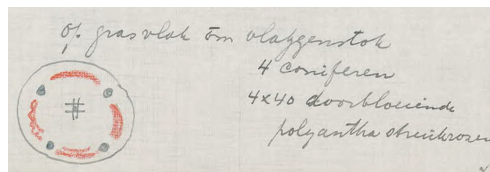 op grasvlak om vlaggenstok
4 coniferen
4x40 doorbloeiende
polyantha struikrozen